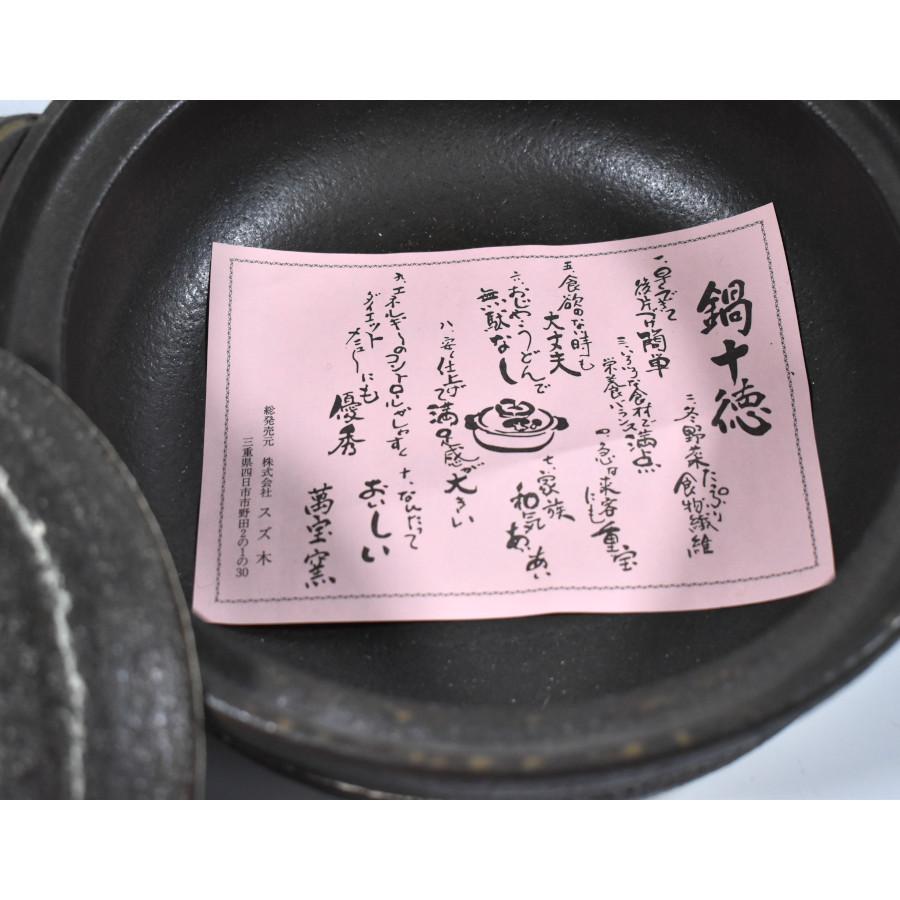 鍋十徳
一、早ゆでて
後片づけ簡単
二、冬野菜たっぷり
食物繊維
三、いろいろな食材で
栄養バランス満点
四、急な来客
にも重宝
五、食欲のな時も
大丈夫
六、おじや・うどんで
無駄なし
七、家族
和気あいあい
八、安く仕上げて満足感が大きい
九、エネルギーのコントロールがしやすく
ダイエット
メニューにも優秀
十、なんたって
おいしい
萬宝窯
総発売元 株式会社 スズ木
三重県四日市市野田2の1の30